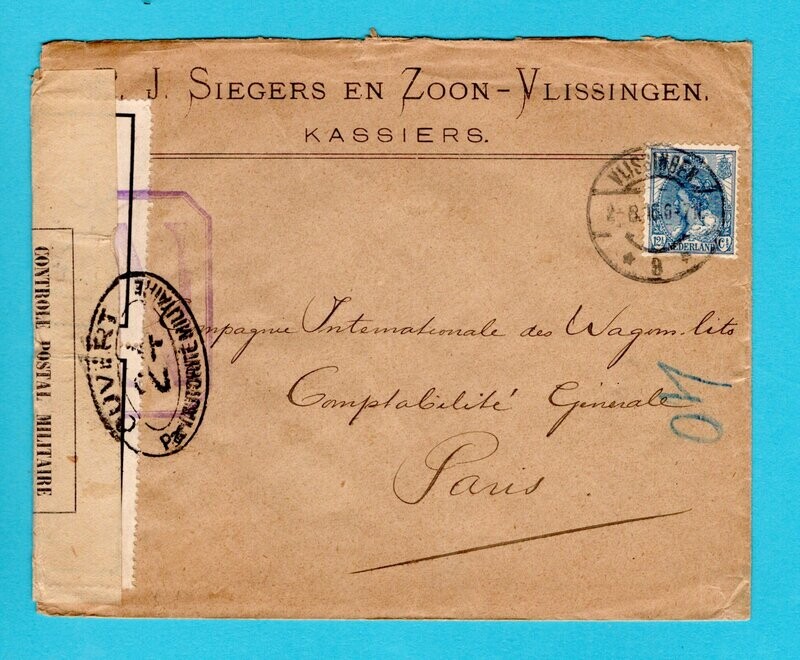 J. SIEGERS EN ZOON-VLISSINGEN.
KASSIERS.
VLISSINGEN
8
12½ NEDERLAND Ct
CONTROLE POSTAL MILITAIRE
OUVERT
Par l'AUTORITÉ MILITAIRE
Compagnie Internationale des Wagons-lits
Comptabilité Générale
Paris
40